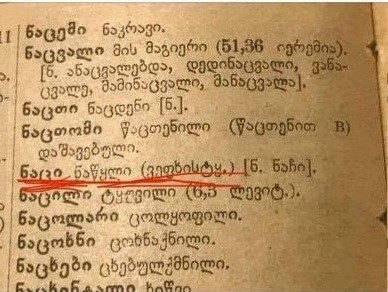 11 ნაცემი ნაკრავი.
ნაცვალი მის მაგიერი (51,36 იერემია).
[ნ. ანაცვალებდა, დედინაცვალი, ვანა-
ცვალე, მამინაცვალი, მანაცვალა].
ნაცთი ნაცდენი [ნ.].
ნაცთომი წაცთენილი (წაცთენით B)
დაშავებული.
ნაცი ნაწყლი (ვეფხისტყ.) [ნ. ნაჩი].
ნაცილი ტყუვილი (6,3 ლევიტ.).
ნაცოლარი ცოლყოფილი.
ნაცოხნი ცოხნაქნილი.
ნაცხები ცხებულქმნილი.